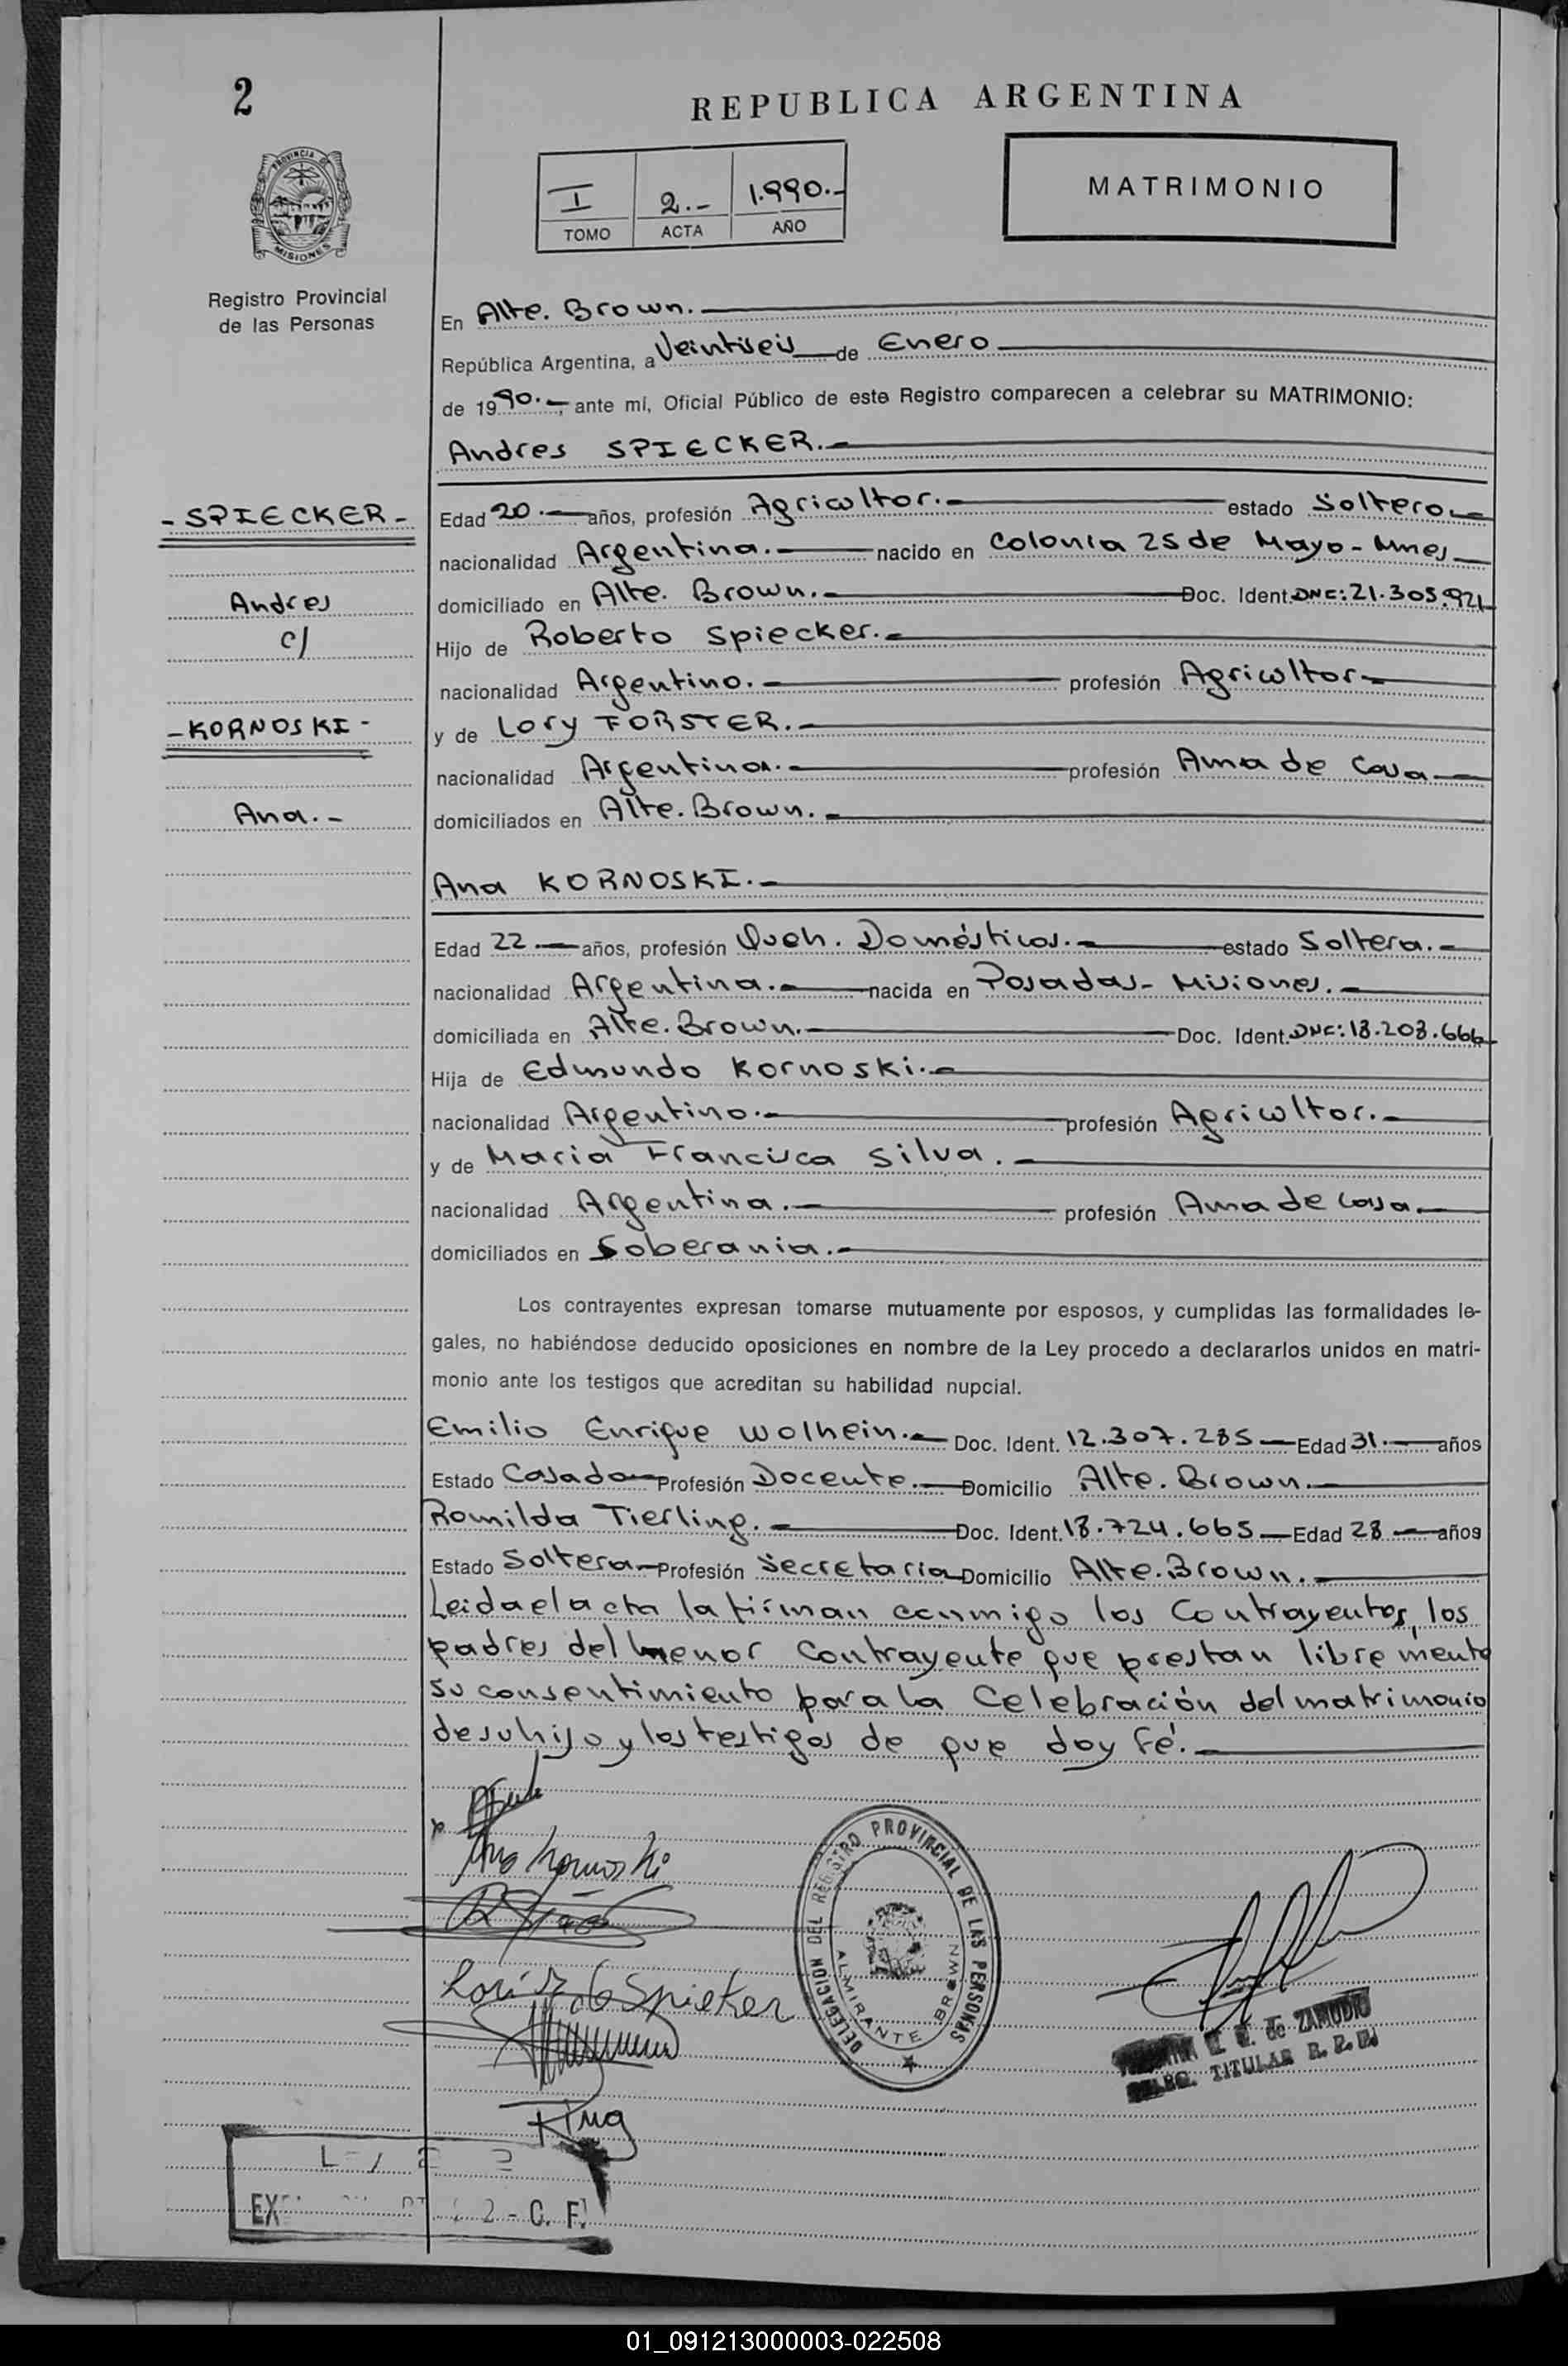 2
REPUBLICA ARGENTINA
PROVINCIA DE
MISIONES
I 2.- 1.990.-
TOMO ACTA AÑO
MATRIMONIO
Registro Provincial
de las Personas
En Alte. Brown.
República Argentina, a Veintiseis de Enero
de 1990.-, ante mí, Oficial Público de este Registro comparecen a celebrar su MATRIMONIO:
Andres SPIECKER.-
- SPIECKER -
Andres
c/
- KORNOSKI -
Ana.-
Edad 20.- años, profesión Agricultor.- estado Soltero
nacionalidad Argentina.- nacido en Colonia 25 de Mayo - Mnes
domiciliado en Alte. Brown.- Doc. Ident. DNI: 21.305.921
Hijo de Roberto Spiecker.-
nacionalidad Argentino.- profesión Agricultor
y de Lory FORSTER.-
nacionalidad Argentina.- profesión Ama de Casa
domiciliados en Alte. Brown.-
Ana KORNOSKI.-
Edad 22.- años, profesión Queh. Domésticos.- estado Soltera.-
nacionalidad Argentina.- nacida en Posadas - Misiones.-
domiciliada en Alte. Brown.- Doc. Ident. DNI: 18.208.666
Hija de Edmundo Kornoski.-
nacionalidad Argentino.- profesión Agricultor.-
y de Maria Francisca Silva.-
nacionalidad Argentina.- profesión Ama de Casa
domiciliados en Soberania.-
Los contrayentes expresan tomarse mutuamente por esposos, y cumplidas las formalidades le-
gales, no habiéndose deducido oposiciones en nombre de la Ley procedo a declararlos unidos en matri-
monio ante los testigos que acreditan su habilidad nupcial.
Emilio Enrique Wolhein.- Doc. Ident. 12.307.285 Edad 31.- años
Estado Casado Profesión Docente.- Domicilio Alte. Brown.
Romilda Tierling.- Doc. Ident. 18.724.665 Edad 28 años
Estado Soltera Profesión Secretaria Domicilio Alte. Brown.-
Leida el acta la firman conmigo los Contrayentes, los
padres del menor Contrayente que prestan libremente
su consentimiento para la Celebración del matrimonio
de su hijo y los testigos de que doy Fé.-
Ana Kornoski
de Spieker
DELEGACION DEL REGISTRO PROVINCIAL DE LAS PERSONAS
ALMIRANTE BROWN
de ZAMUDIO
DELEG. TITULAR R. P. P.
EX 2 - C. F.
01_091213000003-022508